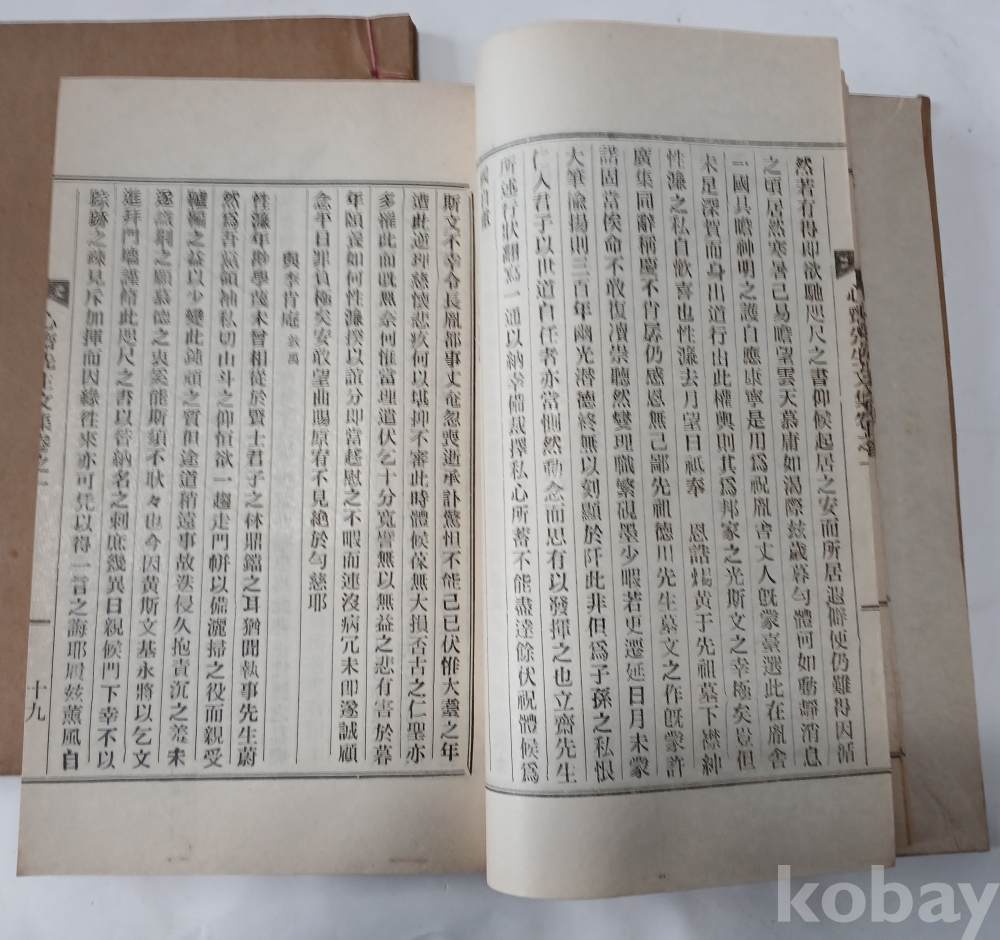 然若有得卽欲馳咫尺之書仰候起居之安而所居遐僻便仍難得因循
之頃居然寒暑已易瞻望雲天慕庸如渴際玆歲暮匀體何如動靜消息
一國具瞻神明之護自應康寧是用爲祝胤舍丈人旣蒙臺選此在胤舍
未足深賀而身出道行由此權輿則其爲邦家之光斯文之幸極矣豈但
性濂之私自歡喜也性濂去月望日祇奉 恩誥燭黃于先祖墓下襟紳
廣集同辭稱慶不肖孱仍感恩無已鄙先祖德川先生墓文之作旣蒙許
諾固當俟命不敢復凟崇聽然燮理職繁硯墨少暇若更遷延日月未蒙
大筆揄揚則三百年幽光潛德終無以刻顯於阡此非但爲子孫之私恨
仁人君子以世道自任者亦當惻然動念而思有以發揮之也立齋先生
所述行狀翻寫一通以納幸備裁擇私心所蓄不能盡達餘伏祝體候爲
斯文不幸令長胤都事丈奄忽喪逝承訃驚怛不能已已伏惟大耋之年
遭此逆理慈懷悲疚何以堪抑不審此時體候葆無大損否古之仁聖亦
多罹此而戱無奈何惟當理遣伏乞十分寬譬無以無益之悲有害於暮
年頤養如何性濂揆以誼分卽當趍慰之不暇而連沒病冗未卽遂誠顧
念平日罪負極矣安敢望曲賜原宥不見絶於匀慈耶
與李肯庵 敦禹
性濂年尠學蔑未曾相從於賢士君子之林鼎鐺之耳猶聞執事先生蔚
然爲吾嶺領袖私切山斗之仰恒欲一趨走門帡以備灑掃之役而親受
之益以少變此鈍頑之質但途道稍遠事故迭侵久抱責沉之羞未
遂識荊之願慕德之衷奚能斯須不耿々也今因黃斯文基永將以乞文
進拜門墻謹脩此咫尺之書以替納名之刺庶幾異日親候門下幸不以
踪跡之疎見斥加揮而因緣往來亦可凭以得一言之誨耶屬玆薰風自
心齋先生文集卷之一
十九
kobay